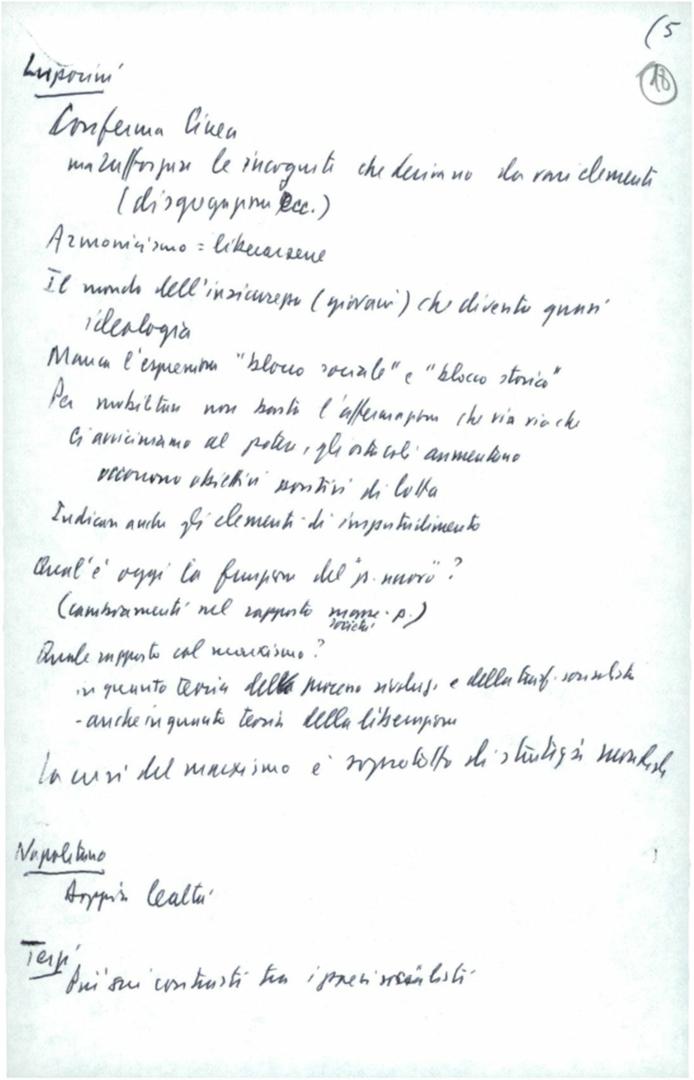 (5
18
Luporini
Conferma linea
ma le incognite che derivano da vari elementi
(disgregazione ecc.)
Armonicismo = liberarsene
Il mondo dell'insicurezza (giovani) che diventa quasi
ideologia
Manca l'espressione "blocco sociale" e "blocco storico"
Per mobilitare non basta l'affermazione che via via che
ci avviciniamo al potere, gli ostacoli aumentano
occorrono obiettivi positivi di lotta
Indicare anche gli elementi di imputridimento
Qual'è oggi la funzione del "p. nuovo"?
(cambiamenti nel rapporto masse - p.)
società
Quale rapporto col marxismo?
in quanto teoria del processo rivoluz. e della trasf. socialista
- anche in quanto teoria della liberazione
La crisi del marxismo è soprattutto di strategia mondiale
Napolitano
Doppia lealtà
Terzi
Più sui contrasti tra i paesi socialisti